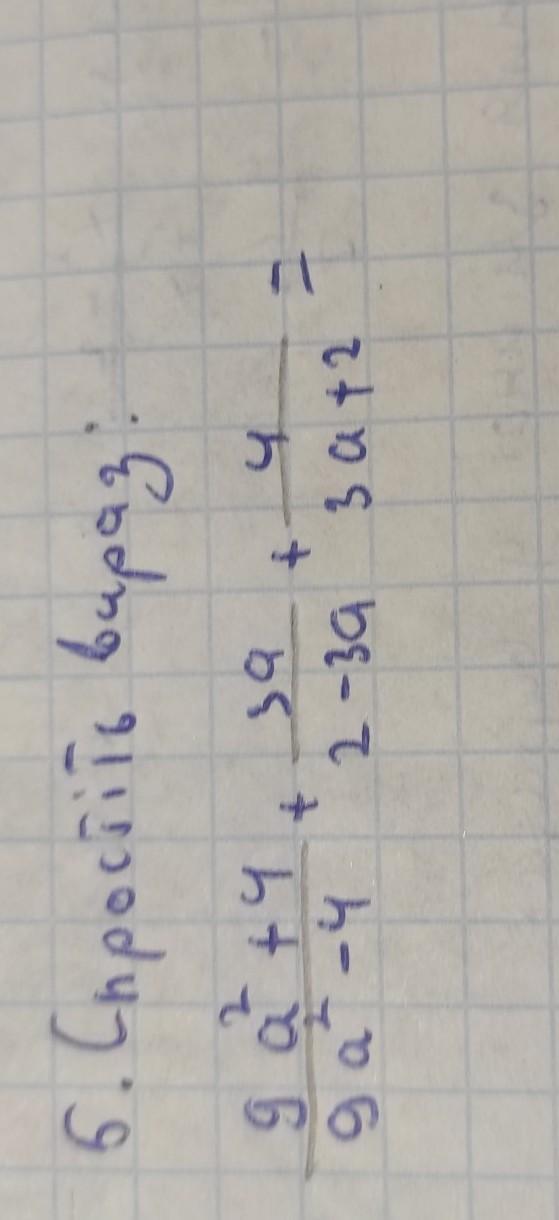 6. Спростіть вираз:
9a² + 4 / 9a² - 4 + 3a / 2 - 3a + 4 / 3a + 2 =